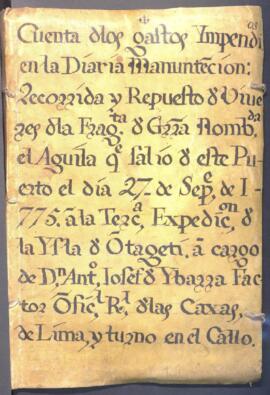 Cuenta dlos gastos Ympendi^os
en la Diaria Manuntecion:
Recorrida y Repuesto d Vive
res dla Frag^ta d Grra Nomb^da
el Aguila q^e salio d este Pu-
erto el dia 27 de Sep^e de 1-
775. â la Terc^a Expedic^on d
la Ysla d Otageti, â cargo
de D^n Ant^o Iosef d Ybarra Fac
tor Ofic^l R^l dlas Caxas,
de Lima, y turno en el Callo.